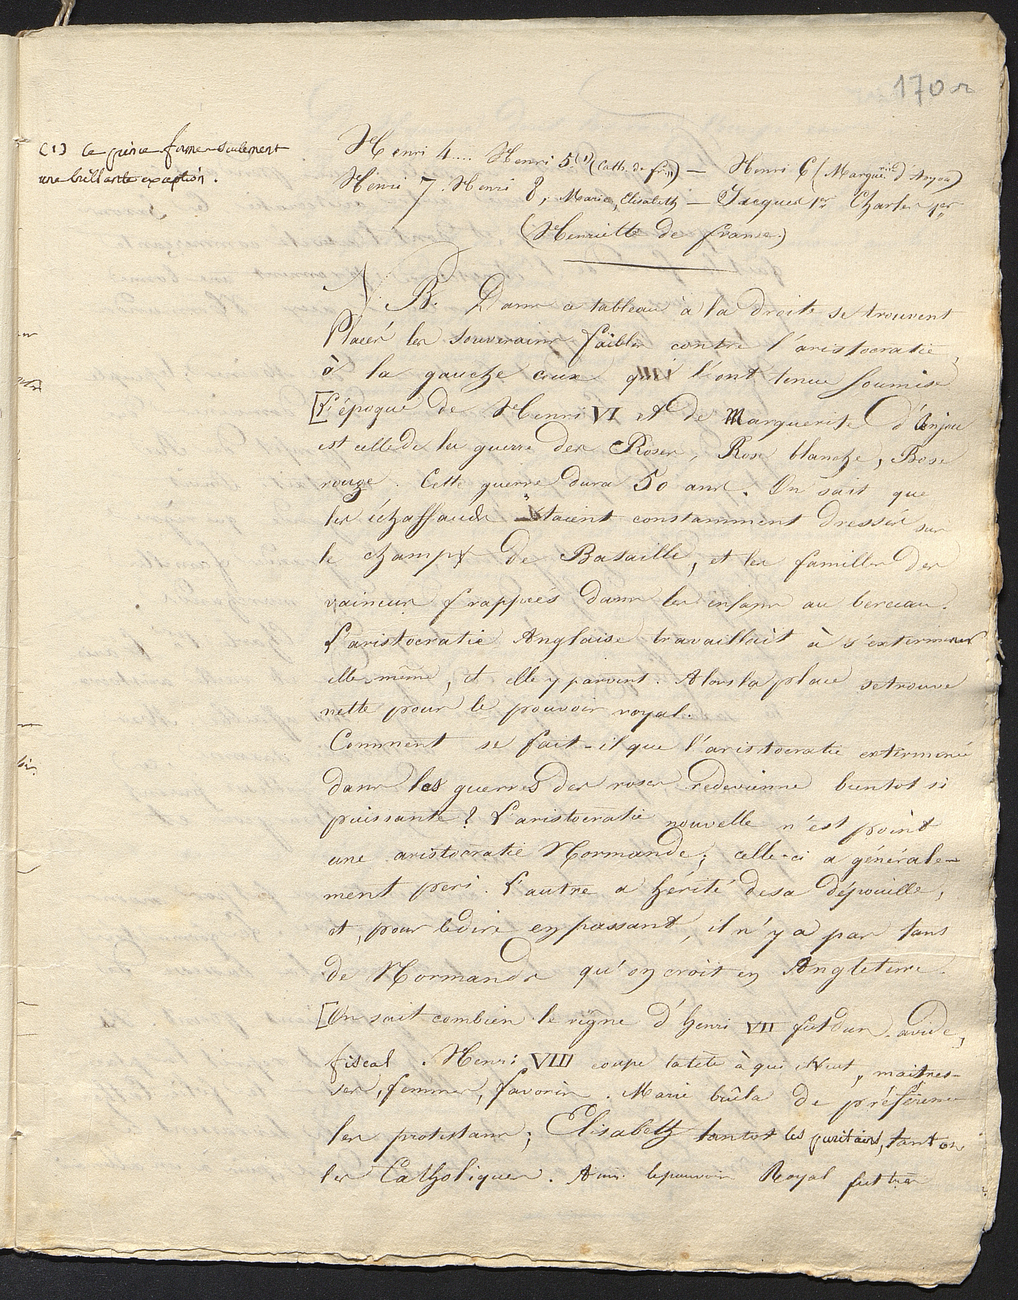 170 r
(1) ce prince forme seulement
une brillante exception.
Henri 4.... Henri 5 (1) (Cath. de fr.) — Henri 6 (Marguerite d'Anjou)
Henri 7. Henri 8, Marie, Elisabeth — Jacques 1er Charles 1er
(Henriette de france.)
N. B. Dans ce tableau à la droite se trouvent
Placés les souverains faibles contre l'aristocratie,
à la gauche ceux qui l'ont tenue soumise
[L'époque de Henri VI et de Marguerite d'Anjou
est celle de la guerre des Roses, Rose blanche, Rose
rouge. Cette guerre dura 50 ans. On sait que
les échaffauds étaient constamment dressés sur
le champ de Bataille, et les familles des
vaincus frappées dans les enfans au berceau.
L'aristocratie Anglaise travaillait à s'exterminer
elle même, et elle y parvint. Alors la place se trouve
nette pour le pouvoir royal.
Comment se fait-il que l'aristocratie exterminée
dans les guerres des roses redevienne bientot si
puissante? L'aristocratie nouvelle n'est point
une aristocratie Normande; celle-ci a générale-
ment peri. L'autre a hérité de sa dépouille,
et, pour le dire en passant, il n'y a pas tant
de Normands qu'on croit en Angleterre.
[On sait combien le règne d'henri VII fut dur, avide,
fiscal. Henri VIII coupe la tête à qui il veut, maitres-
ses, femmes, favoris. Marie brûla de préférence
les protestans; Elisabeth tantot les puritains, tantot
les Catholiques. Ainsi le pouvoir Royal fut très